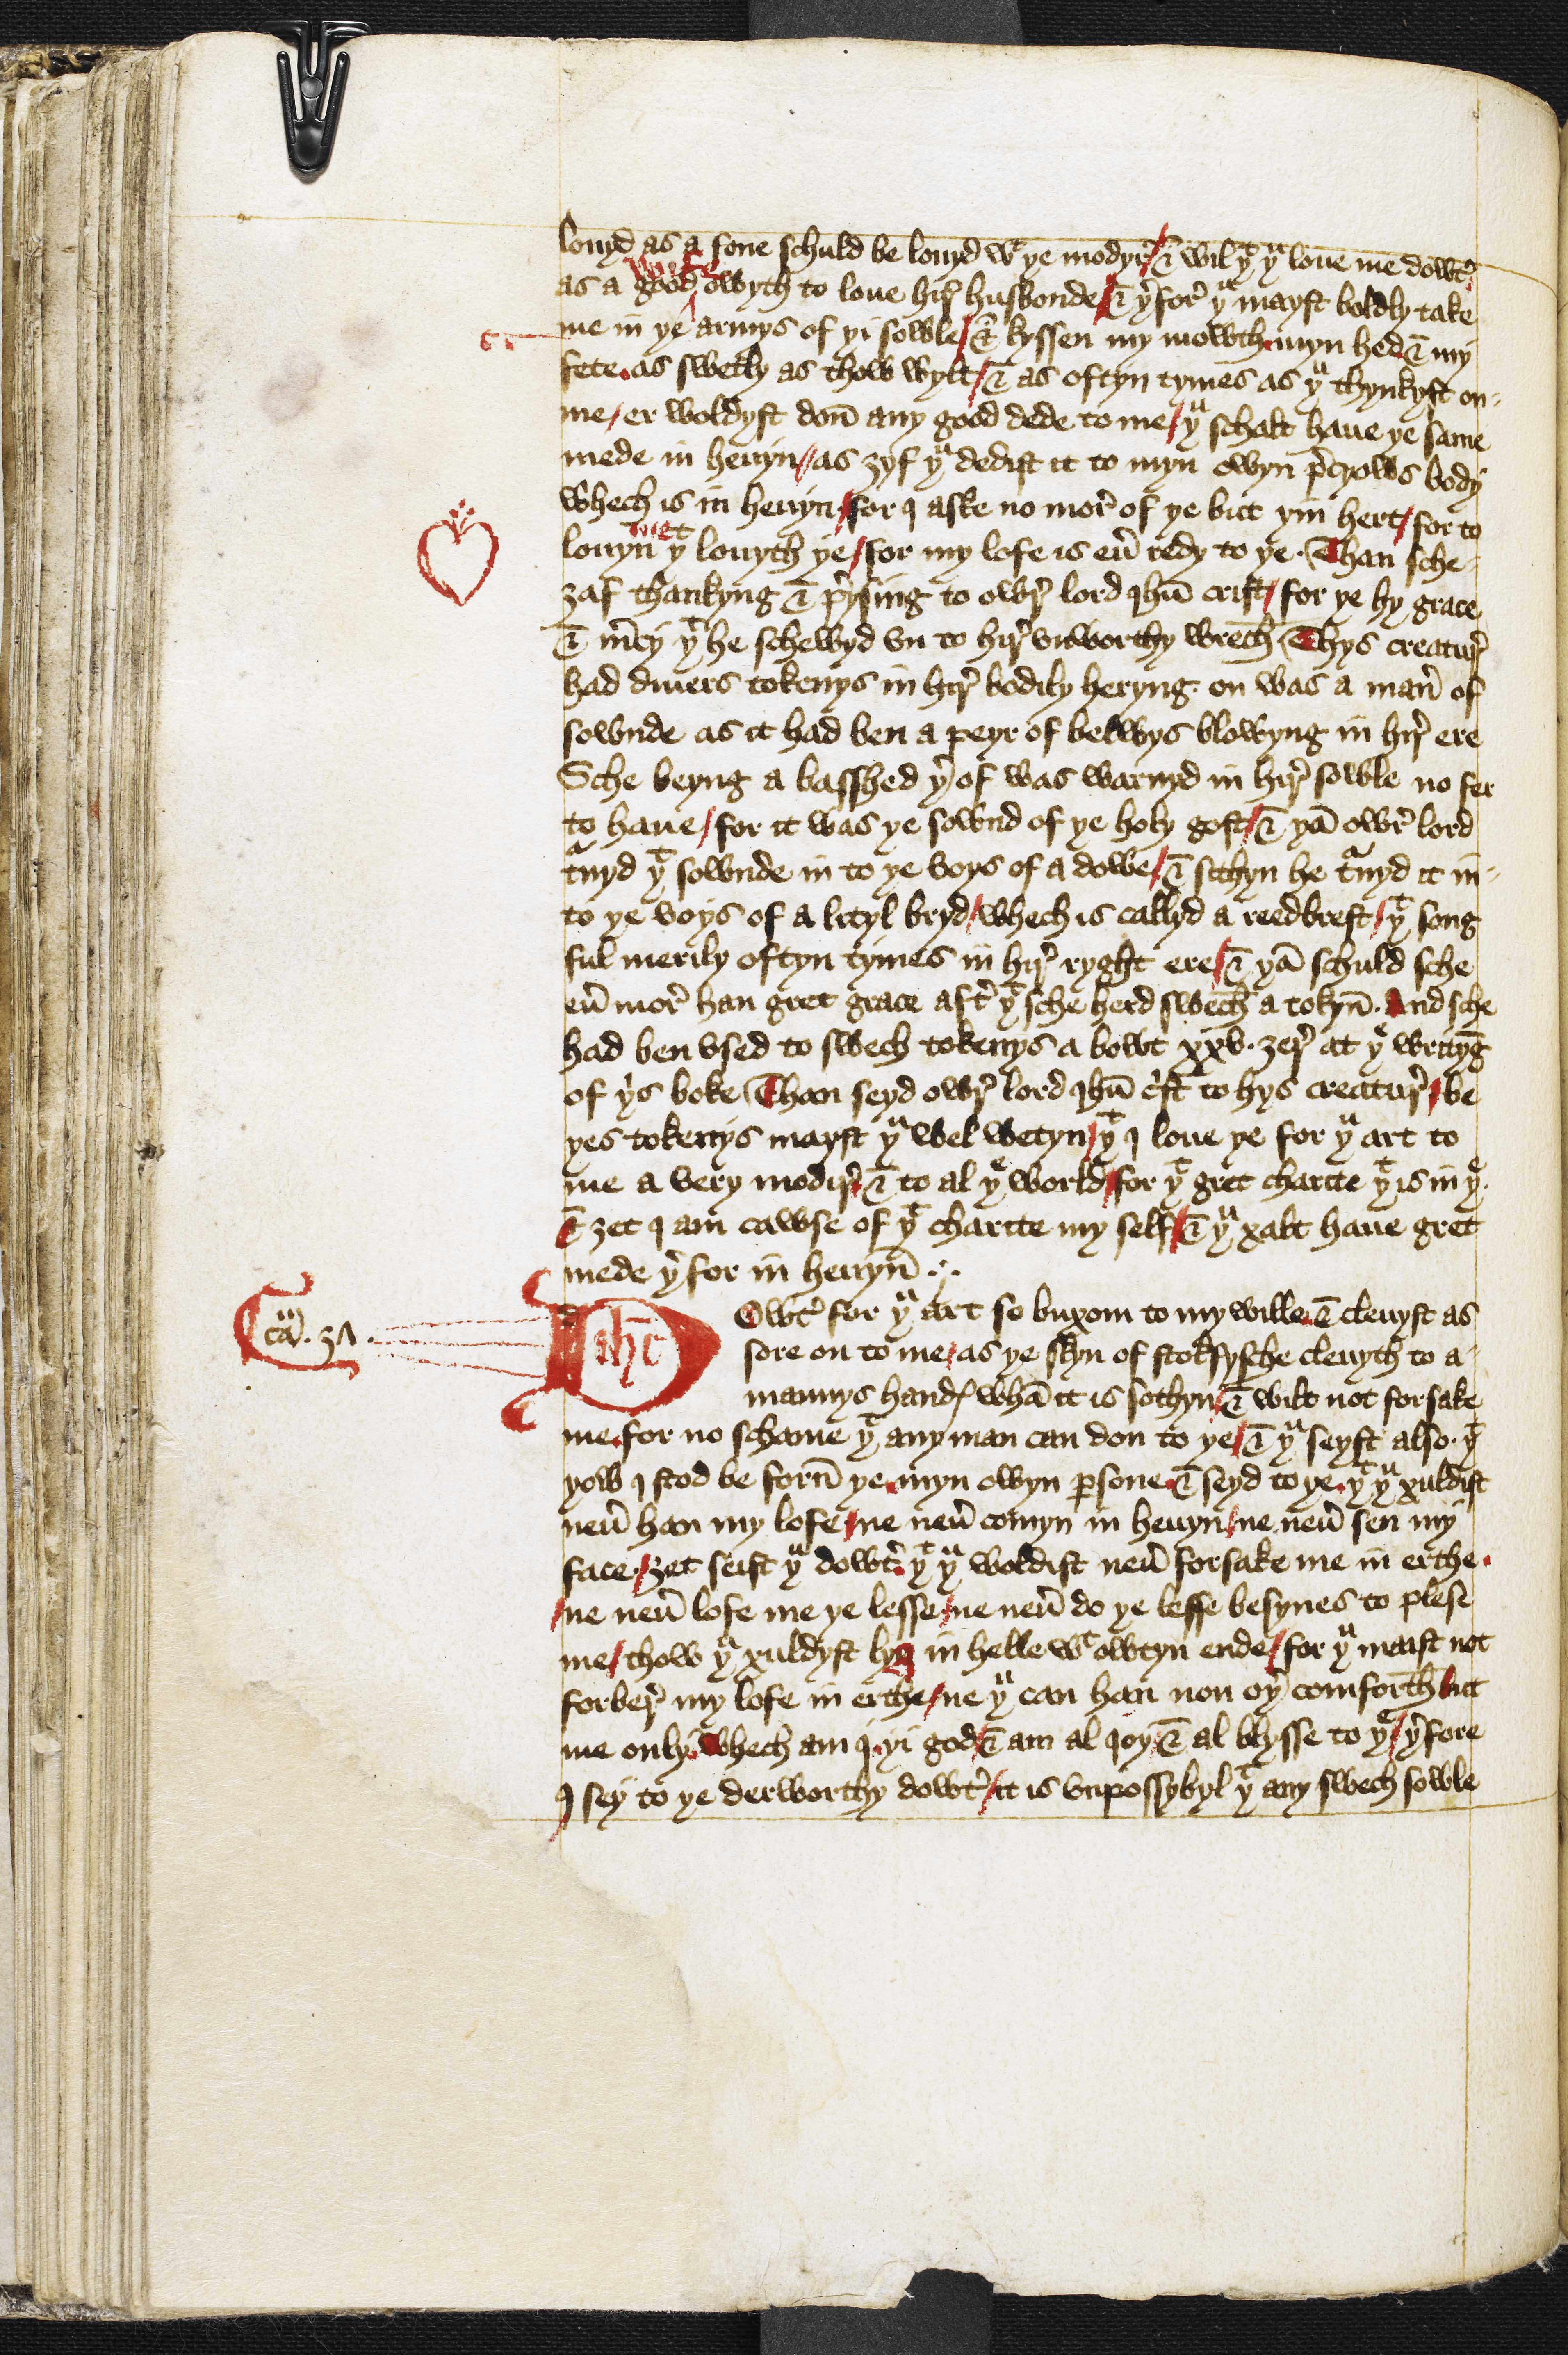 louyd as a sone schuld be louyd wᵗ ye modyr̉ / & wil yᵗ yᵘ loue me dowt̉
wife
as a good owyth to loue hir̉ husbonde / & ỷfor̉ yᵘ mayst boldly take
me in ye armys of yi sowle / & kyssen my mowth myn hed & my
fete as swetly as thow wylt / & as oftyn tymes as yᵘ thynkyst on
me / er woldyst don̄ any good dede to me / yᵘ schalt haue ye same
mede in heuyn // as ȝyf yᵘ dedist it to myn owyn p̉cyows body
whech is in heuyn / for I aske no mor̉ of ye but yin hert / for to
me
louyn yᵗ louyth ye / for my lofe is eủ redy to ye . Than sche
ȝaf thankyng & p̉ysing to owr̉ lord Ihū crist / for ye hy grace
& m̉cy yᵗ he schewyd vn to hir̉ vnworthy wrech Thys creatur̉
had diuers tokenys in hir̉ bodily heryng . on was a man̉ of
sownde as it had ben a peyr of belwys blowyng in hir̉ ere
Sche beyng a basshed ỷof was warnyd in hir̉ sowle no fer
to haue / for it was ye sownd of ye holy gost / & yā owr̉ lord
t̉nyd yᵗ sownde in to ye voys of a dowe / & sithyn he t̉nyd it in
to ye voys of a lityl bryd / whech is callyd a reedbrest / yᵗ song
ful merily oftyn tymes in hir̉ ryght ere / & yā schuld sche
eủ mor̉ han gret grace aft̉ yᵗ sche herd swech a tokyn̄ . And sche
had ben vsed to swech tokenys a bowt xxv . ȝer̉ at yᵉ writyḡ
of yⁱs boke Than seyd owr̉ lord Ihū c̉st to hys creatur̉ / be
yes tokenys mayst yᵘ wel wetyn / yᵗ I loue ye for yᵘ art to
me a very modir̉ & to al yᵉ world / for yᵗ gret charite yᵗ is in yᵉ .
& ȝet I am cawse of yᵗ charite my self / & yᵘ xalt haue gret
mede ỷfor in heuyn̄ . . .
Caᵐ . 37 .
d
D ihc̄
Owt̉ for yᵘ art so buxom to my wille & cleuyst as
sore on to me / as ye skyn of stokfysche cleuyth to a
mannys handꝭ whā it is sothyn / & wilt not forsake
me for no schame yᵗ any man can don to ye / & yᵘ seyst also . yᵗ
yow I stod be forn̄ ye myn owyn ꝑsone & seyd to ye yᵗ yᵘ xuldist
neủ han my lofe / ne neủ comyn in heuyn / ne neủ sen my
face . / ȝet seist yᵘ dowt̉ yᵗ yᵘ woldist neủ forsake me in erthe .
/ ne neủ lofe me ye lesse / ne neủ do ye lesse besynes to plese
me / thow yᵘ xuldyst lyn in helle wᵗ owtyn ende / for yᵘ maist not
forber̉ my lofe in erthe / ne yᵘ can han non oỷ comforth but
me only Whech am I yi god & am al joy & al blysse to yᵉ / ỷfore
I sey to ye derworthy dowt̉ / it is vnpossybyl yᵗ any swech sowle